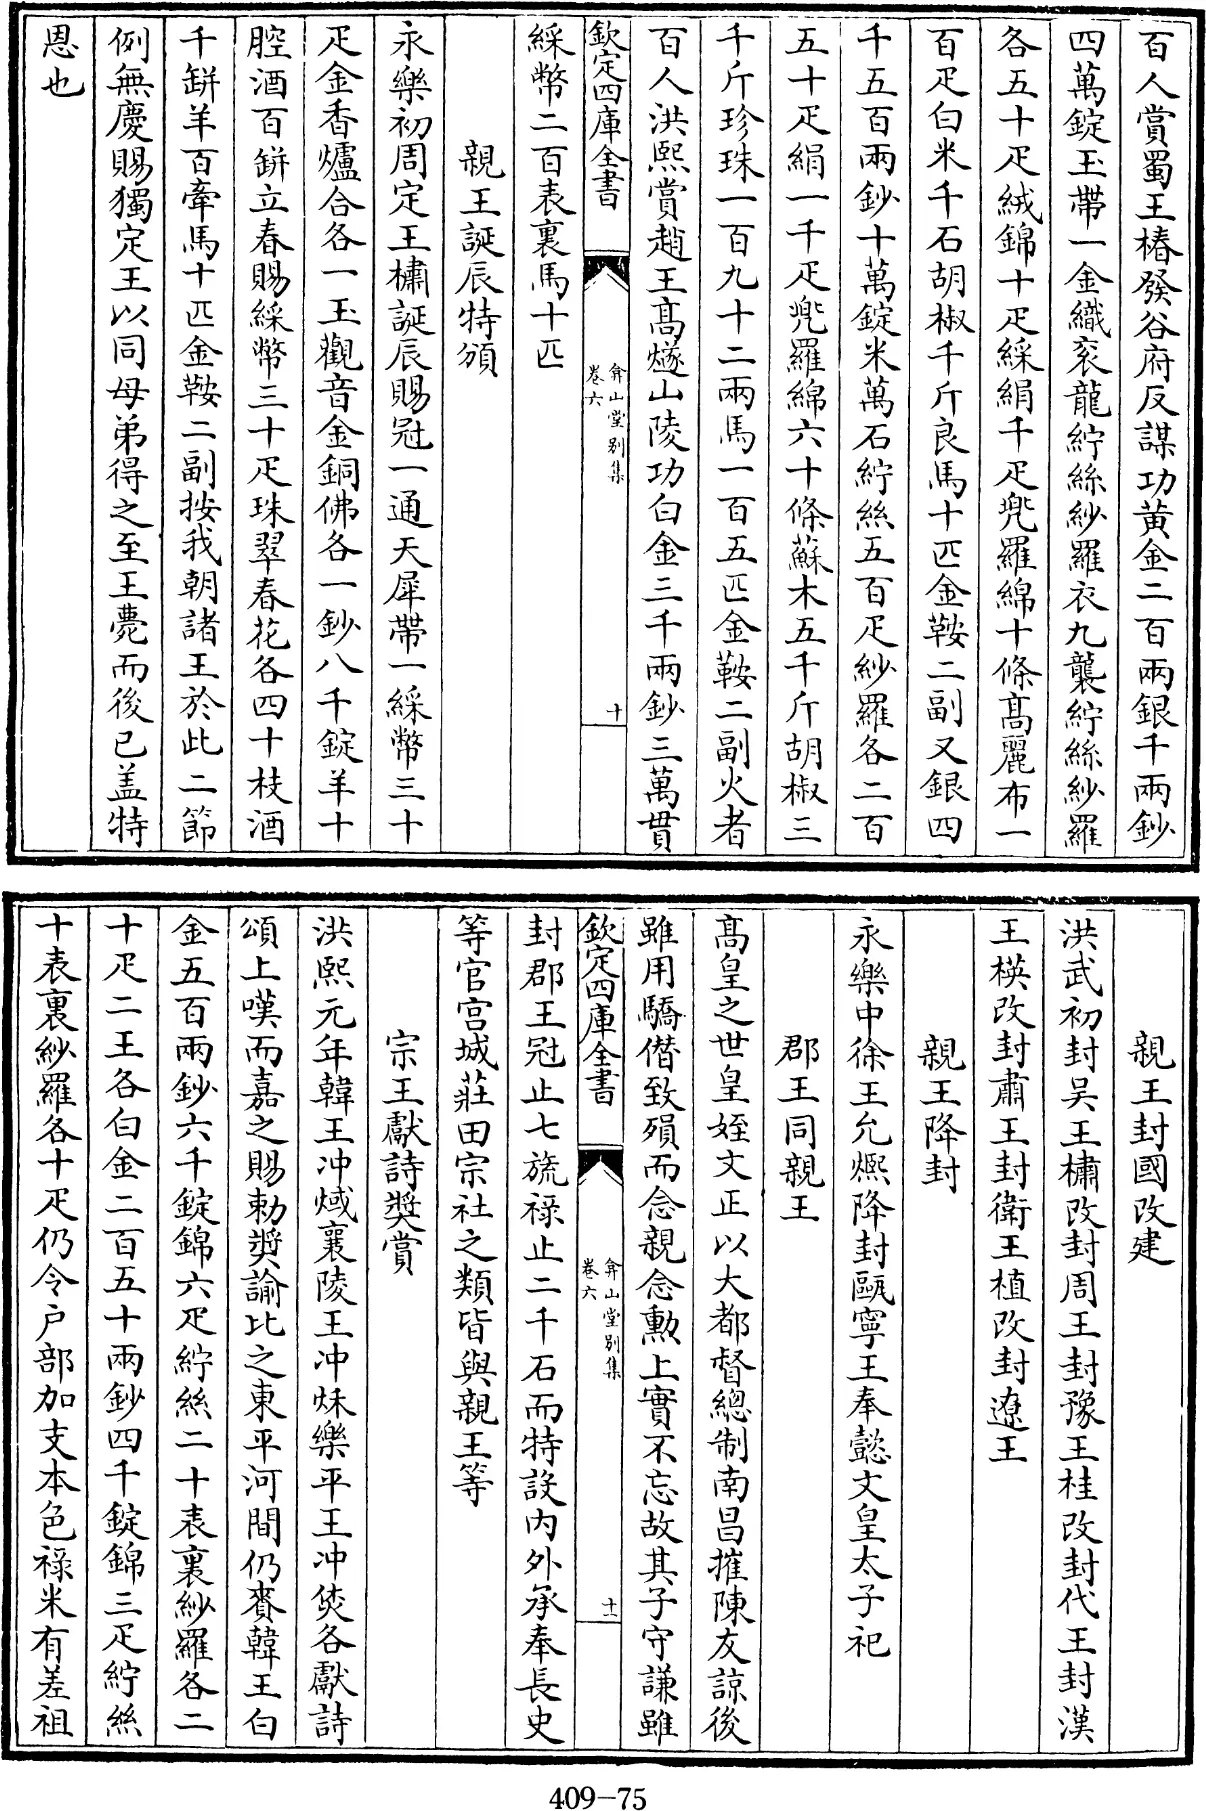 百人賞蜀王椿發谷府反謀功黄金二百兩銀千兩鈔
四萬錠玉帶一金織衮龍紵絲紗羅衣九襲紵絲紗羅
各五十疋絨錦十疋綵絹千疋兠羅綿十條髙麗布一
百疋白米千石胡椒千斤良馬十匹金鞍二副又銀四
千五百兩鈔十萬錠米萬石紵絲五百疋紗羅各二百
五十疋絹一千疋兠羅綿六十條蘇木五千斤胡椒三
千斤珍珠一百九十二兩馬一百五匹金鞍二副火者
百人洪熙賞趙王髙燧山陵功白金三千兩鈔三萬貫
欽定四庫全書
弇山堂别集
卷六
十
綵幣二百表裏馬十匹
親王誕辰特頒
永樂初周定王橚誕辰賜冠一通天犀帶一綵幣三十
疋金香爐合各一玉觀音金銅佛各一鈔八千錠羊十
腔酒百缾立春賜綵幣三十疋珠翠春花各四十枝酒
千缾羊百牽馬十匹金鞍二副按我朝諸王於此二節
例無慶賜獨定王以同母弟得之至王薨而後已盖特
恩也
親王封國改建
洪武初封吴王橚改封周王封豫王桂改封代王封漢
王楧改封肅王封衛王植改封遼王
親王降封
永樂中徐王允熈降封甌寧王奉懿文皇太子祀
郡王同親王
髙皇之世皇姪文正以大都督總制南昌摧陳友諒後
雖用驕僣致殞而念親念勲上實不忘故其子守謙雖
欽定四庫全書
弇山堂别集
卷六
十一
封郡王冠止七旒禄止二千石而特設内外承奉長史
等官宫城莊田宗社之類皆與親王等
宗王獻詩奬賞
洪熙元年韓王冲㷂襄陵王冲烌樂平王冲烾各獻詩
頌上嘆而嘉之賜勅奬諭比之東平河間仍賚韓王白
金五百兩鈔六千錠錦六疋紵絲二十表裏紗羅各二
十疋二王各白金二百五十兩鈔四千錠錦三疋紵絲
十表裏紗羅各十疋仍令户部加支本色禄米有差祖
409-75